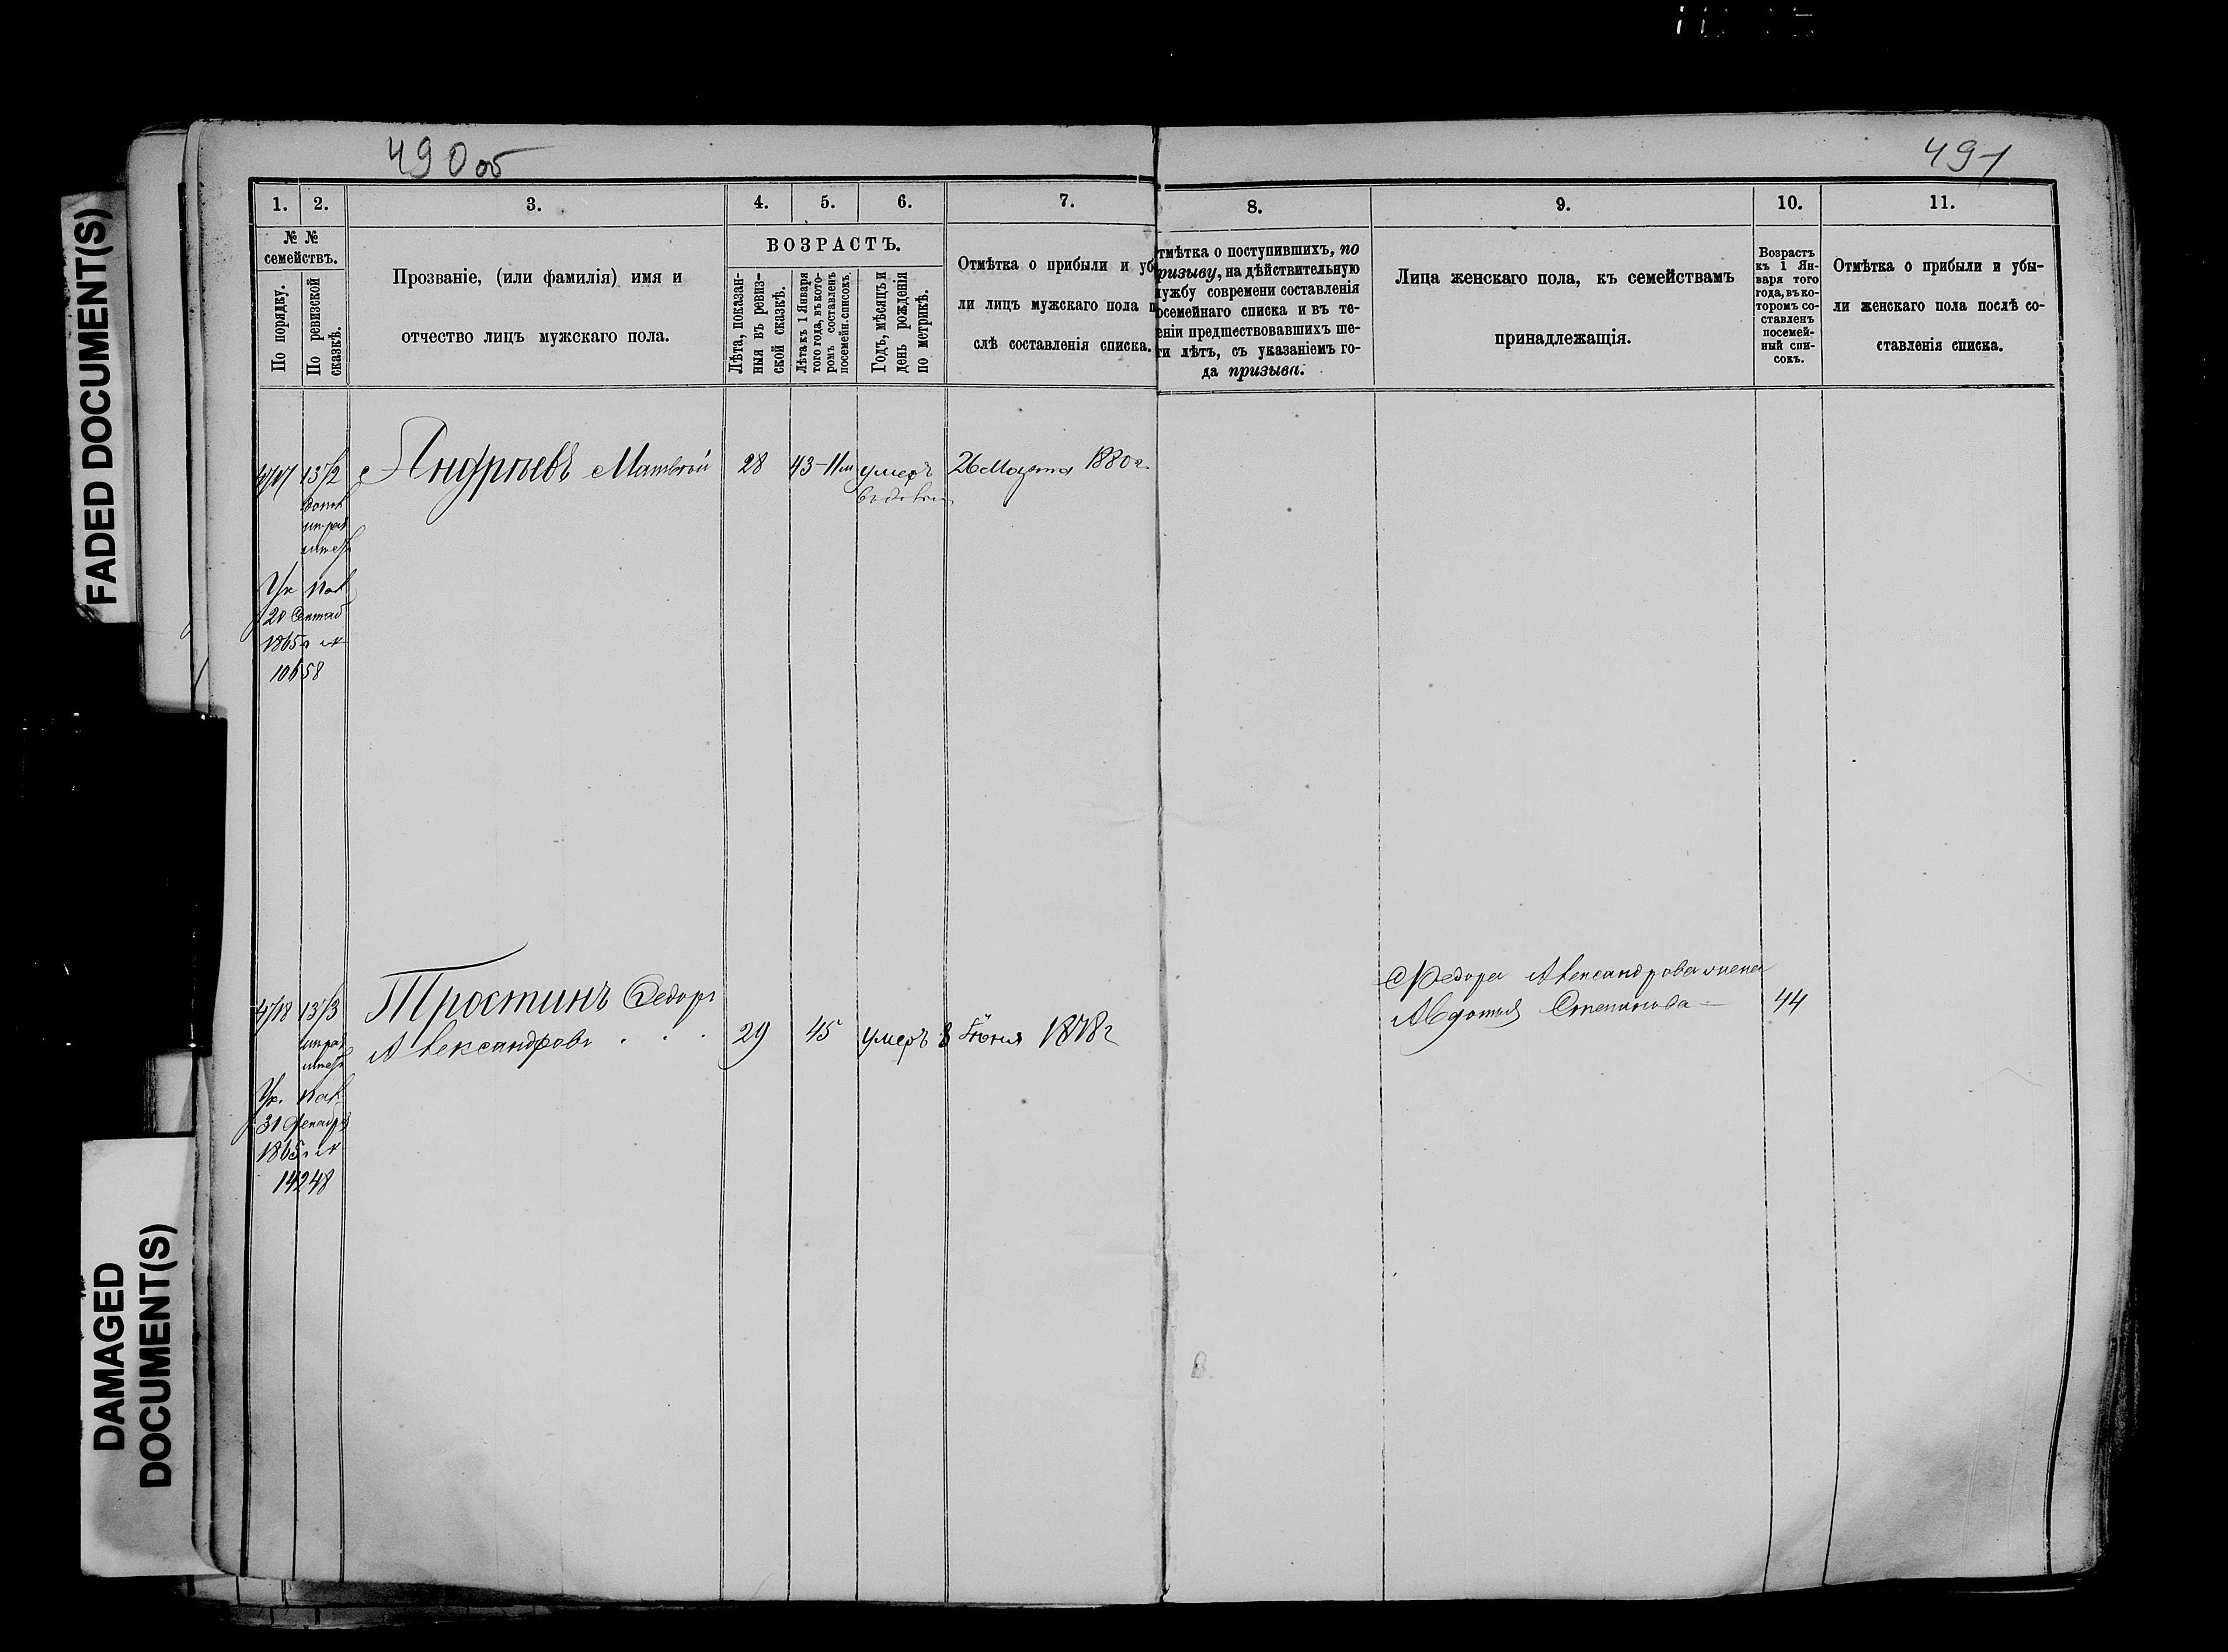 490 об
491
FADED DOCUMENT(S)
DAMAGED
DOCUMENT(S)
1.
2.
3.
4.
5.
6.
7.
8.
9.
10.
11.
№ №
семействъ.
По порядку.
По ревизской
сказкѣ.
Прозваніе, (или фамилія) имя и
отчество лицъ мужскаго пола.
ВОЗРАСТЪ.
Лѣта, показан-
ныя въ ревиз-
ской сказкѣ.
Лѣта къ 1 Января
того года, въ кото-
ромъ составленъ
посемейн. списокъ.
Годъ, мѣсяцъ и
день рожденія
по метрикѣ.
Отмѣтка о прибыли и уб
ли лицъ мужскаго пола п
слѣ составленія списка.
тмѣтка о поступившихъ, по
ризыву, на дѣйствительную
ужбу современи составленія
осемейнаго списка и въ те-
еніи предшествовавшихъ ше-
ти лѣтъ, съ указаніемъ го-
да призыва.
Лица женскаго пола, къ семействамъ
принадлежащія.
Возрастъ
къ 1 Ян-
варя того
года, въ ко-
торомъ со-
ставленъ
посемей-
ный спи-
сокъ.
Отмѣтка о прибыли и убы-
ли женскаго пола послѣ со-
ставленія списка.
Андреевъ Матвей 28 43 умеръ 26 Марта 1880 г.
Ук
20 Сентяб
1865
10658
Тростинъ Федоръ
Александровъ . . . 29 45 умеръ 8 Іюня 1878 г
Ук.
31 Декабря
1865
14248
Федора Александрова жена
Авдотья Степанова — 44